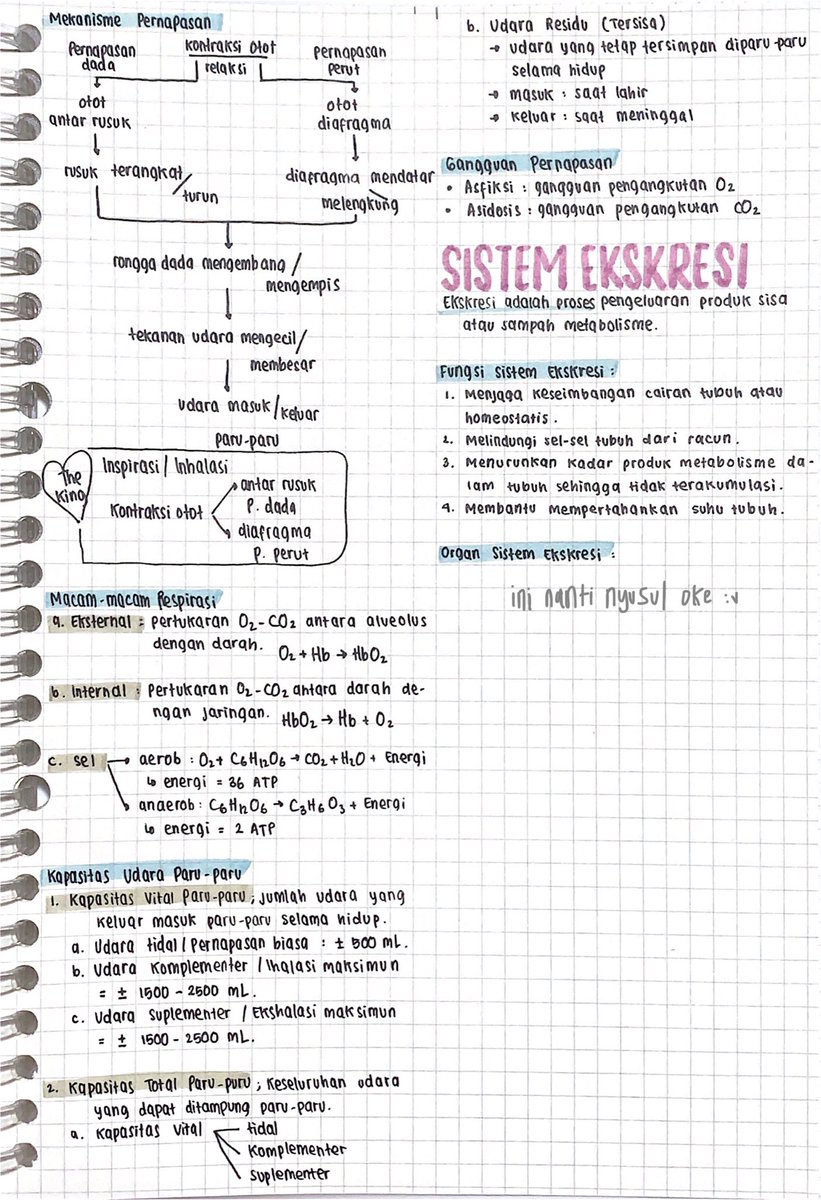 Mekanisme Pernapasan
Pernapasan dada
kontraksi otot
relaksi
Pernapasan perut
otot antar rusuk
otot diafragma
rusuk terangkat/
turun
diafragma mendatar
melengkung
rongga dada mengembang/
mengempis
tekanan udara mengecil/
membesar
udara masuk/keluar
paru-paru
The King
Inspirasi/Inhalasi
Kontraksi otot
antar rusuk
P. dada
diafragma
P. perut
Macam-macam Respirasi
a. Eksternal : pertukaran O2-CO2 antara alveolus
dengan darah. O2 + Hb → HbO2
b. Internal : Pertukaran O2-CO2 antara darah de-
ngan jaringan. HbO2 → Hb + O2
c. sel → aerob : O2 + C6H12O6 → CO2 + H2O + Energi
↳ energi = 36 ATP
anaerob : C6H12O6 → C3H6O3 + Energi
↳ energi = 2 ATP
Kapasitas Udara Paru-paru
1. Kapasitas Vital Paru-paru ; jumlah udara yang
keluar masuk paru-paru selama hidup.
a. Udara tidal/Pernapasan biasa : ± 500 mL.
b. Udara Komplementer / Ihalasi maksimun
= ± 1500 - 2500 mL.
c. Udara Suplementer / Ekshalasi maksimun
= ± 1500 - 2500 mL.
2. Kapasitas Total Paru-puru ; Keseluruhan udara
yang dapat ditampung paru-paru.
a. Kapasitas Vital
tidal
Komplementer
Suplementer
b. Udara Residu (Tersisa)
→ udara yang tetap tersimpan diparu-paru
selama hidup
→ masuk : saat lahir
→ keluar : saat meninggal
Gangguan Pernapasan
• Asfiksi : gangguan pengangkutan O2
• Asidosis : gangguan pengangkutan CO2
SISTEM EKSKRESI
Ekskresi adalah proses pengeluaran produk sisa
atau sampah metabolisme.
Fungsi Sistem Ekskresi :
1. Menjaga keseimbangan cairan tubuh atau
homeostatis.
2. Melindungi sel-sel tubuh dari racun.
3. Menurunkan kadar produk metabolisme da-
lam tubuh sehingga tidak terakumulasi.
4. Membantu mempertahankan suhu tubuh.
Organ Sistem Ekskresi :
ini nanti nyusul oke :v